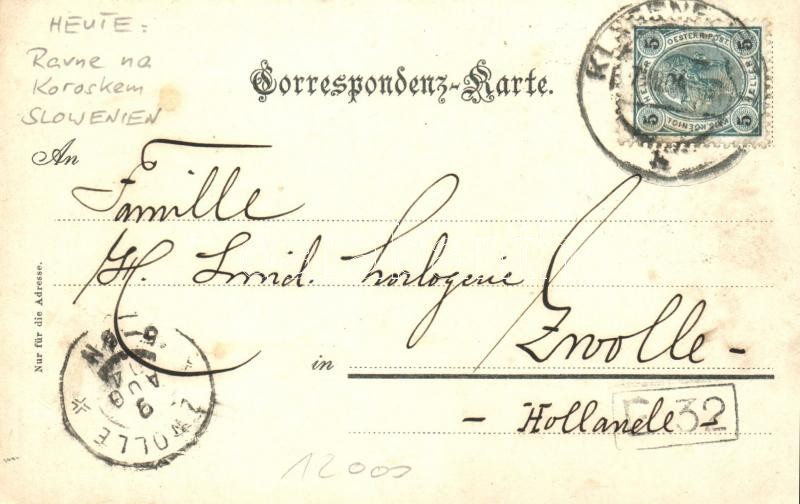 HEUTE:
Ravne na
Koroskem
SLOWENIEN
Correspondenz-Karte.
5 OESTERR.POST. 5
HELLER HELLER
5 KAIS.KOENIGL. 5
An
Familie
H. Smid. horlogerie
in Zwolle -
- Hollande -
32
Nur für die Adresse.
ZWOLLE
9
AUG
04
8-N
12000